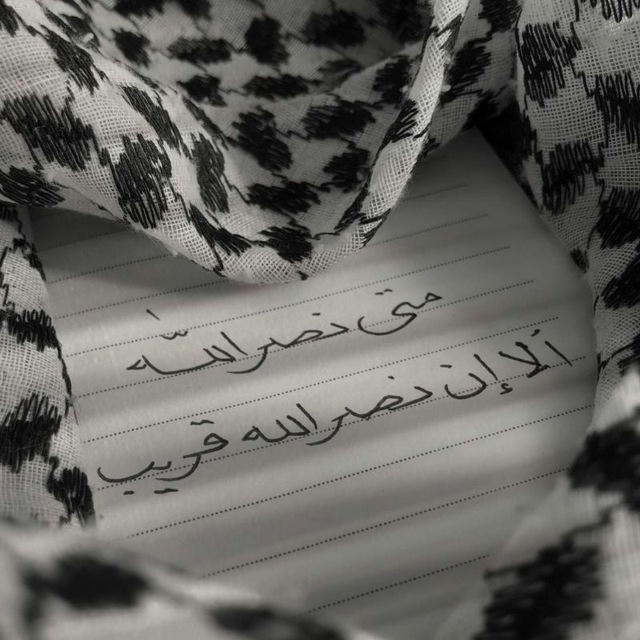 متى نصر الله
ألا إن نصر الله قريب